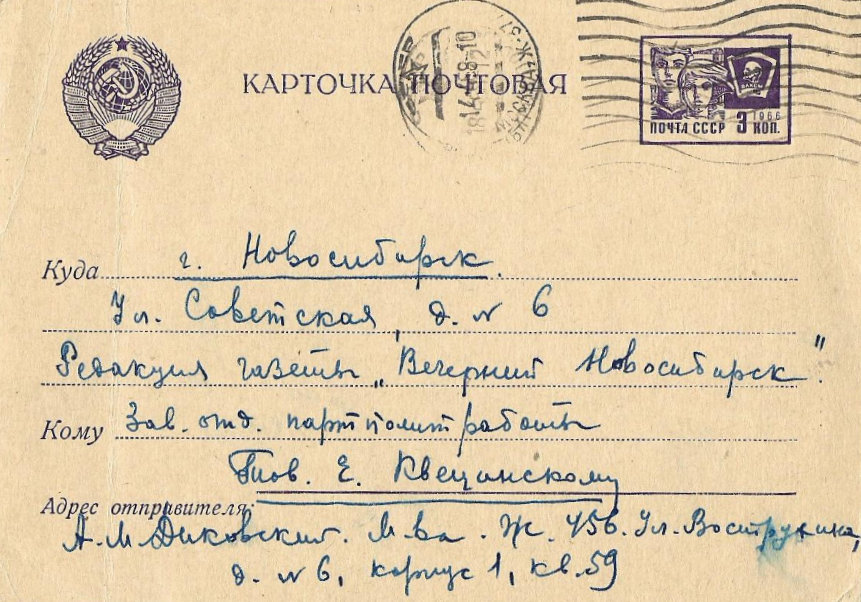 КАРТОЧКА ПОЧТОВАЯ
ВЛКСМ
1966
ПОЧТА СССР 3 КОП.
Куда г. Новосибирск.
Ул. Советская, д. № 6
Редакция газеты „Вечерний Новосибирск".
Кому Зав. отд. партполитработы
Тов. Е. Квецинскому
Адрес отправителя:
А.М. Диковский. М-ва. Ж. 456. Ул. Вострухина,
д. № 6, корпус 1, кв. 59